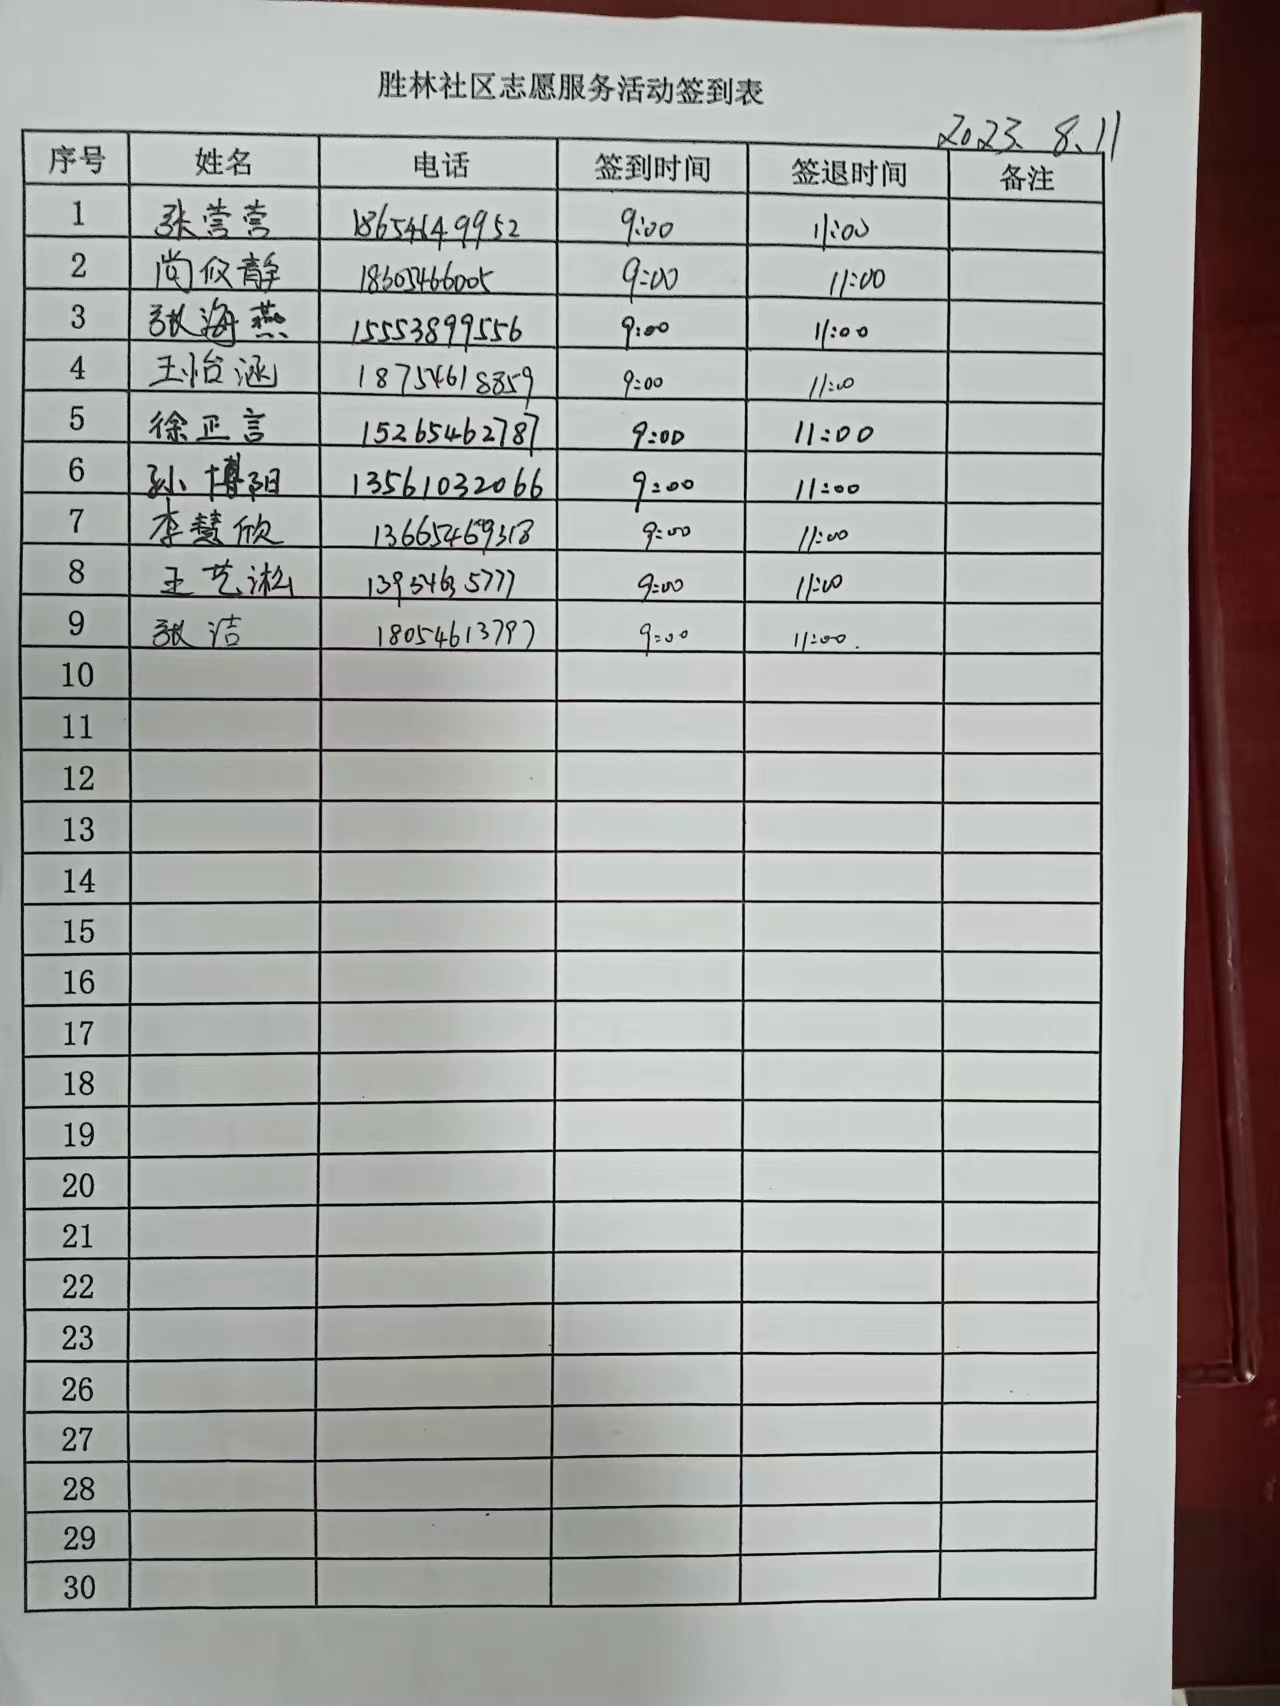 胜林社区志愿服务活动签到表
2023. 8.11
序号 姓名 电话 签到时间 签退时间 备注
1 张营营 18654649952 9:00 11:00
2 尚俊静 18605466005 9:00 11:00
3 张海燕 15553899556 9:00 11:00
4 王怡涵 18754618859 9:00 11:00
5 徐正言 15265462787 9:00 11:00
6 孙博阳 13561032066 9:00 11:00
7 李慧欣 13665469318 9:00 11:00
8 王艺淞 9:00 11:00
9 张洁 18054613797 9:00 11:00.
10
11
12
13
14
15
16
17
18
19
20
21
22
23
26
27
28
29
30